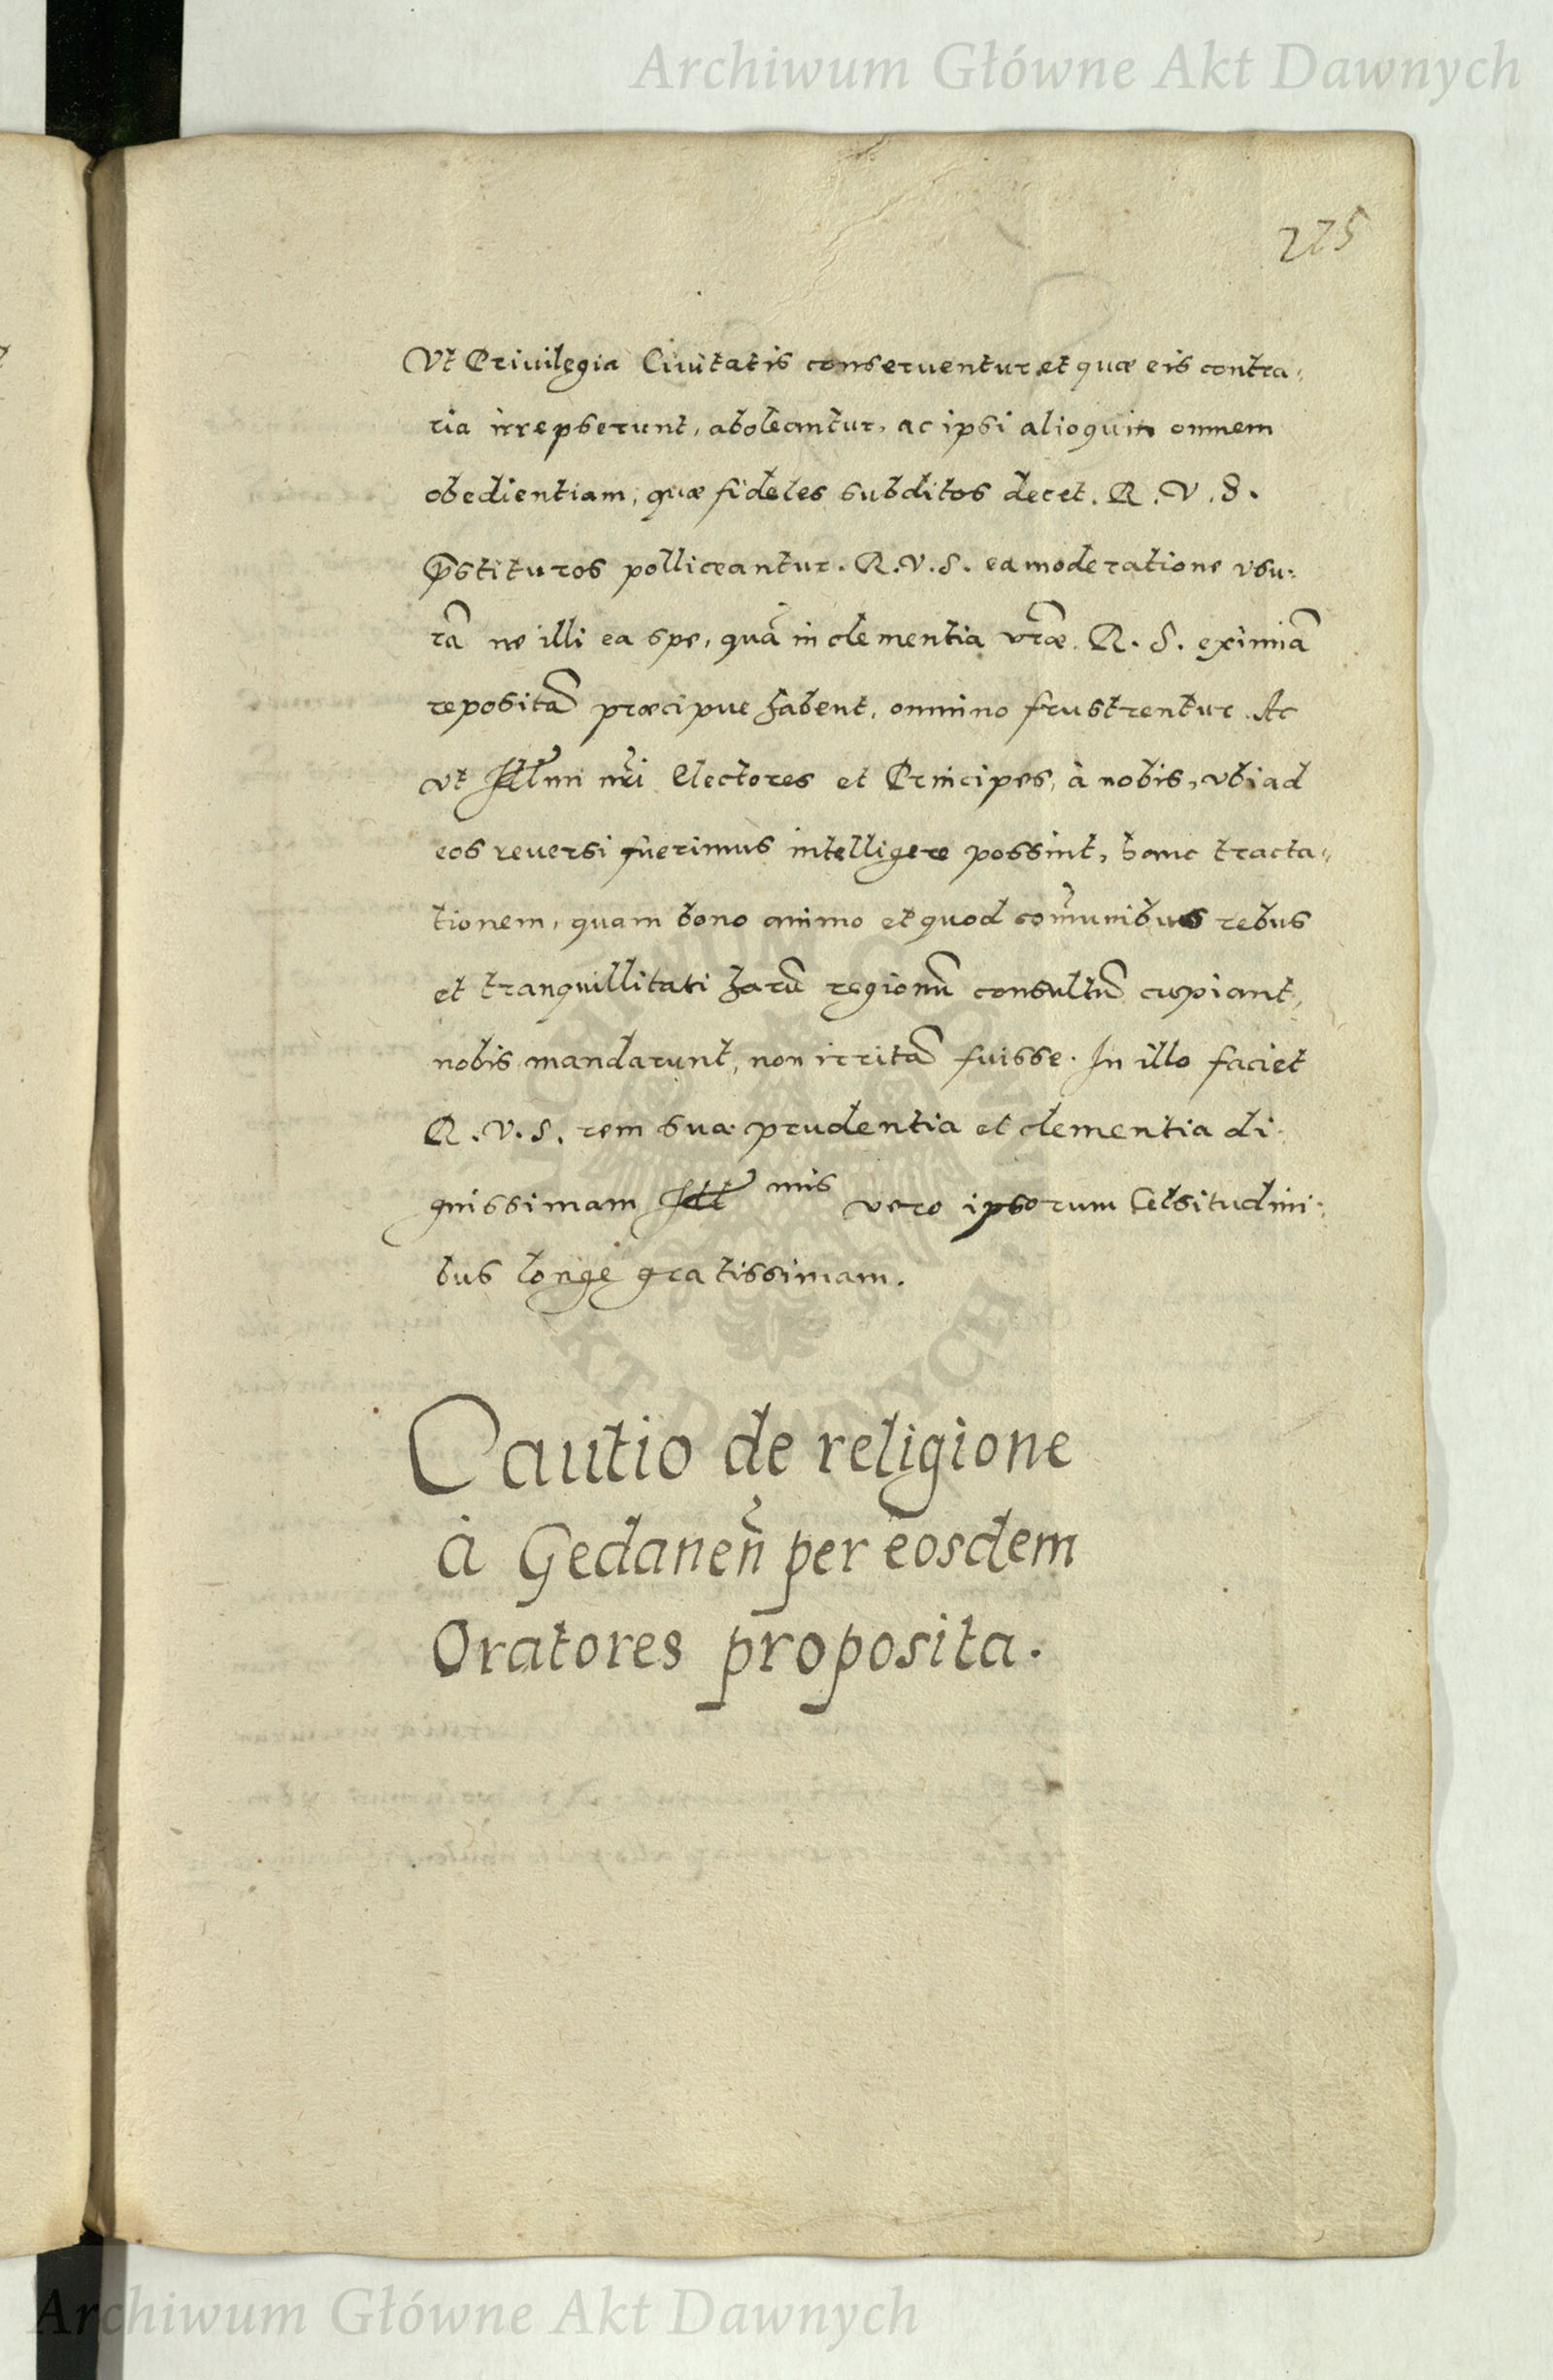 Archiwum Główne Akt Dawnych
225
Vt Privilegia Civitatis conseruentur et quæ eis contra-
ria irrepserunt, aboleantur, ac ipsi alioquin omnem
obedientiam, quæ fideles subditos decet. R. V. S.
p̄stituros polliceantur. R. V. S. ea moderatione vsu-
rā ne illi ea spe, quā in clementia vrāe. R. S. eximiā
repositā præcipue habent, omnino frustrentur. Ac
vt Illmi nri Electores et Principes, à nobis, vbi ad
eos reuersi fuerimus intelligere possint, hanc tracta-
tionem, quam bono animo et quod com̃unibus rebus
et tranquillitati harū regionū consultū cupiant,
nobis mandarunt, non irritā fuisse. In illo faciet
R. V. S. rem sua prudentia et clementia di-
gnissimam Ill mis vero ipsorum Celsitudini-
bus longè gratissimam.
Cautio de religione
à Gedanen̄ per eosdem
Oratores proposita.
Archiwum Główne Akt Dawnych